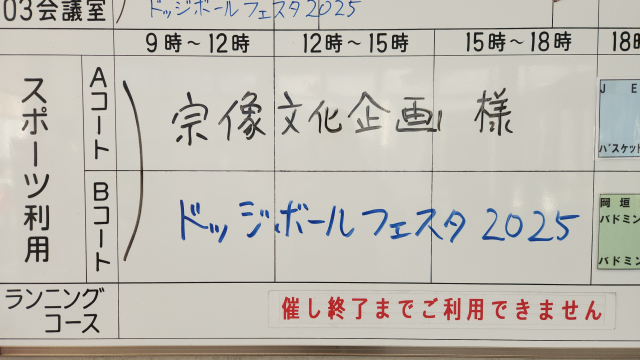 03会議室
ドッジボールフェスタ2025
9時～12時 12時～15時 15時～18時 18時
スポーツ利用
Aコート
宗像文化企画 様
J E
バスケット
Bコート
ドッジボールフェスタ 2025
岡垣
バドミン
バドミン
ランニングコース
催し終了までご利用できません